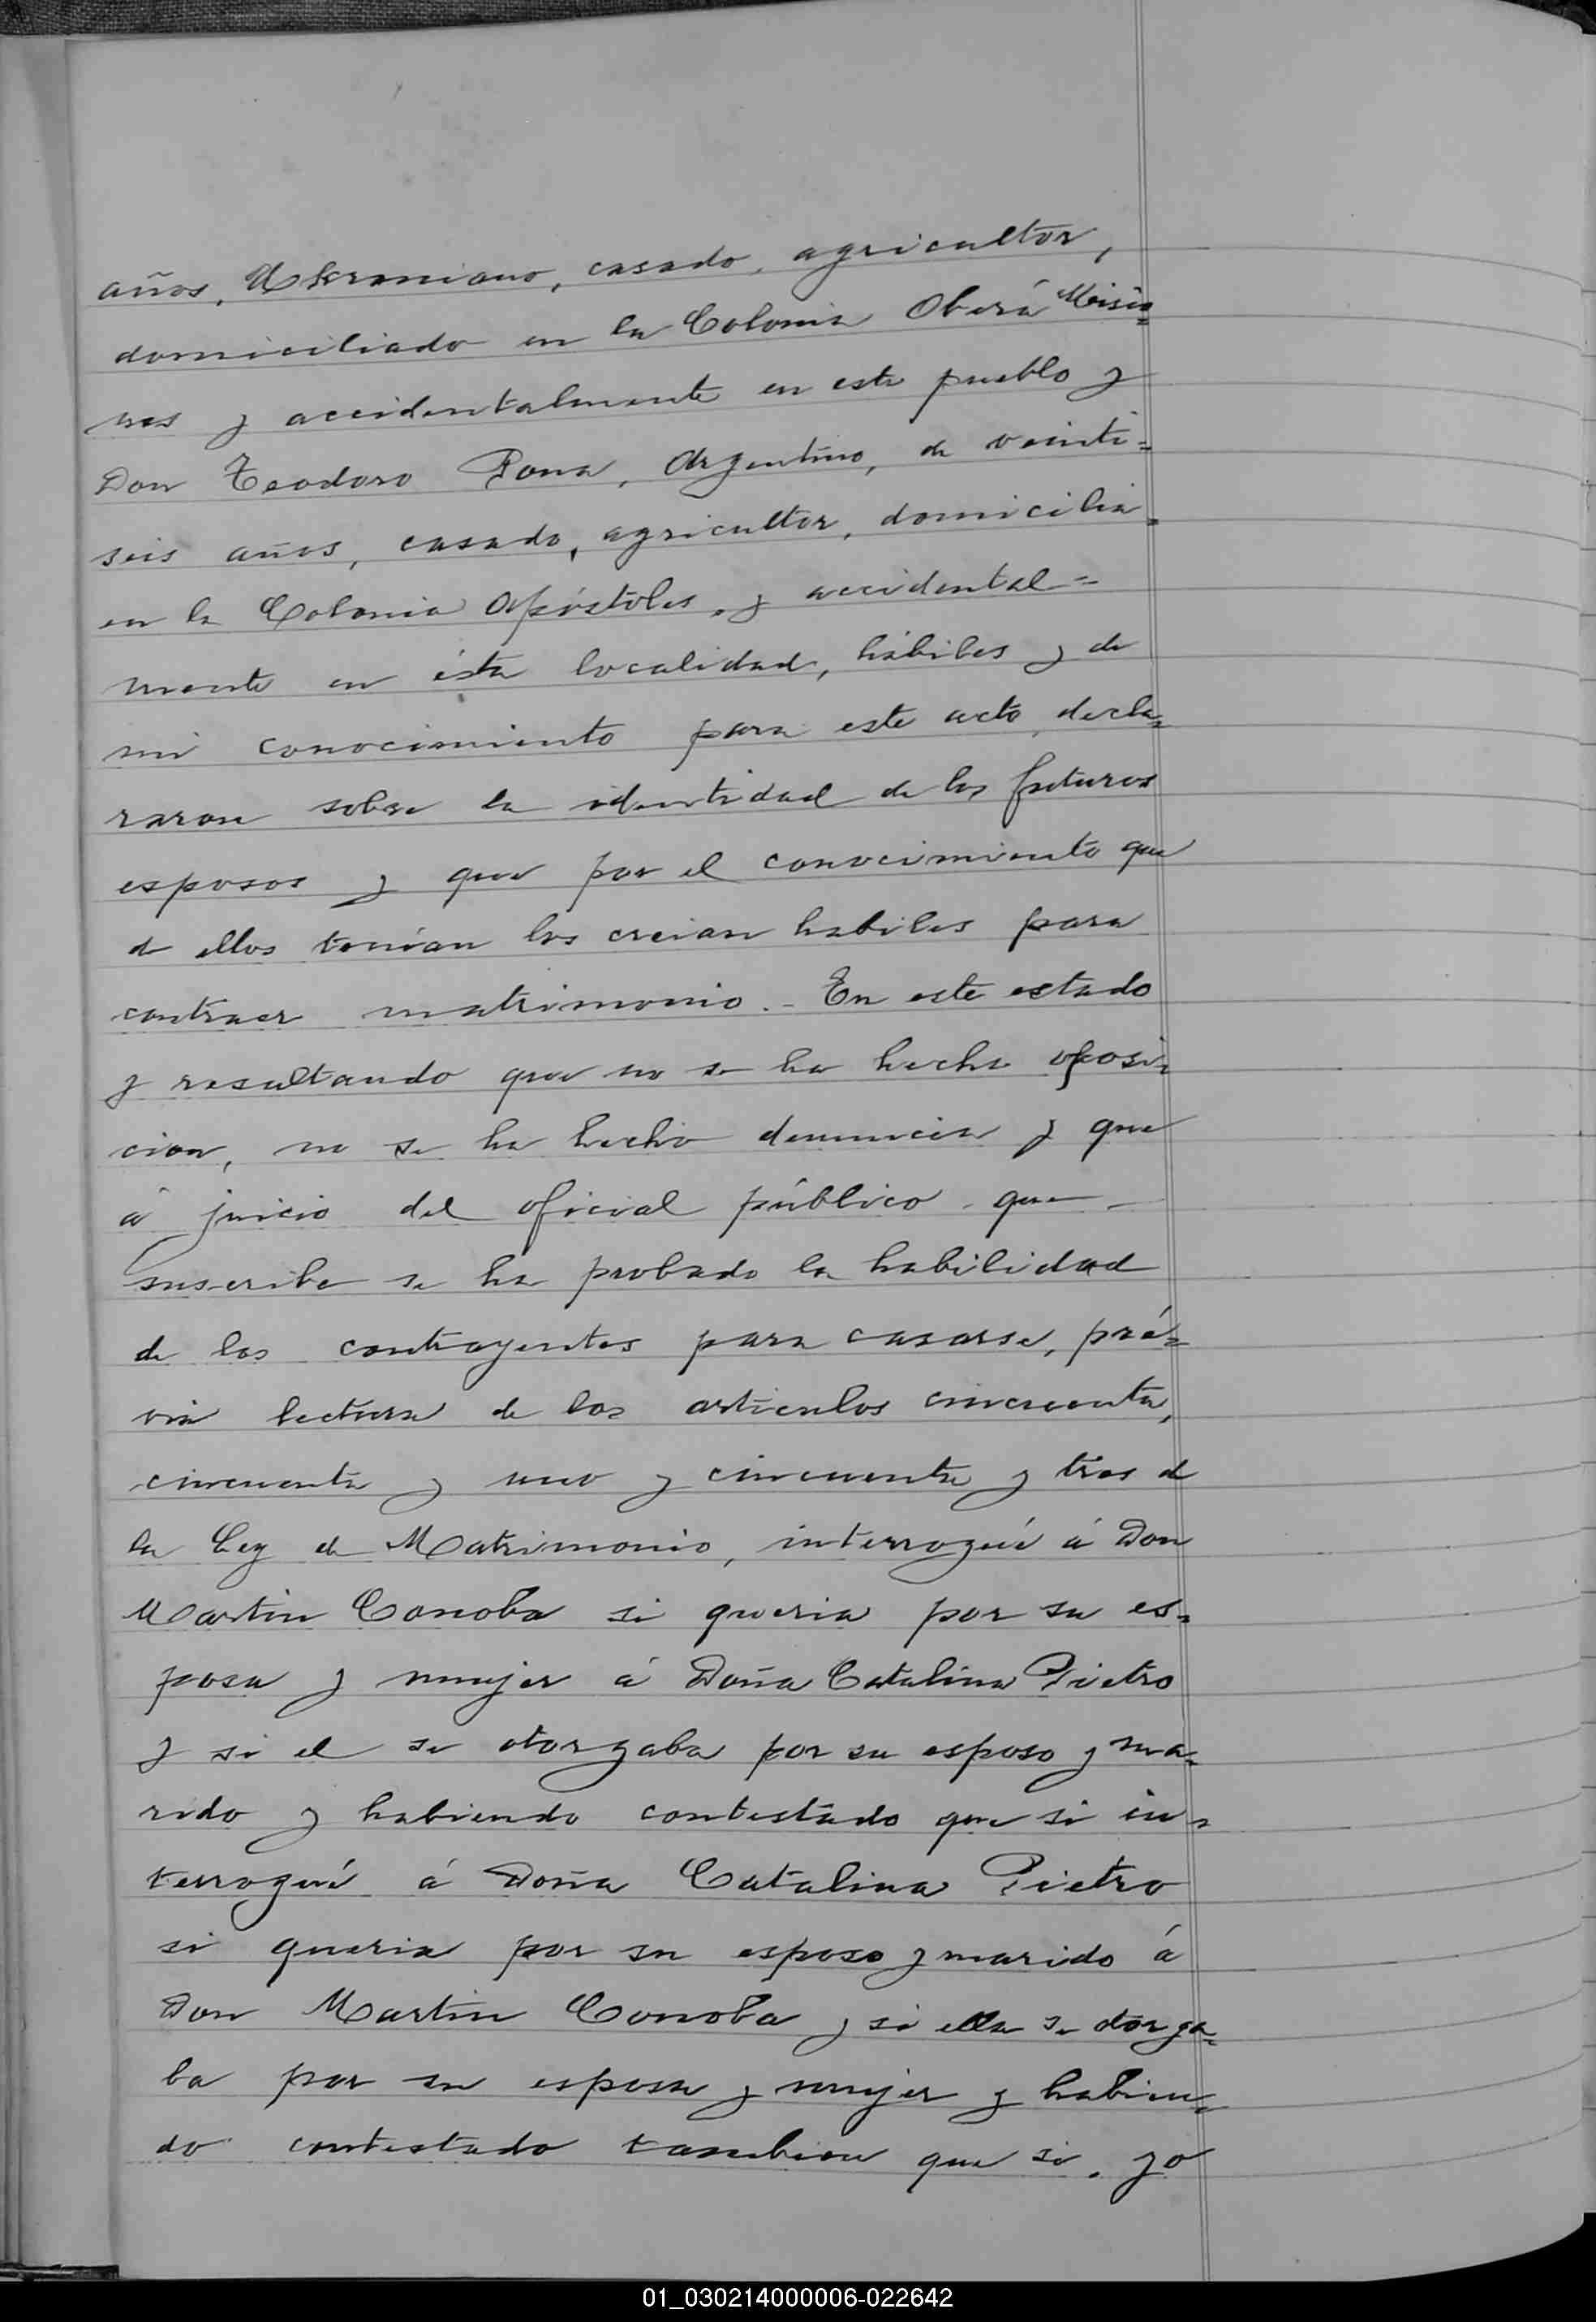 años, Ukraniano, casado, agricultor,
domiciliado en la Colonia Oberá Misio=
nes y accidentalmente en este pueblo y
Don Teodoro Pona, Argentino, de veinti=
seis años, casado, agricultor, domicilia=
en la Colonia Apóstoles, y accidental=
mente en ésta localidad, hábiles y de
mi conocimiento para este acto, decla=
raron sobre la identidad de los futuros
esposos y que por el conocimiento que
de ellos tenían los creian habiles para
contraer matrimonio.- En este estado
y resultando que no se ha hecho oposi=
cion, no se ha hecho denuncia y que
á juicio del oficial público que-
suscribe se ha probado la habilidad
de los contrayentes para casarse, pré=
via lectura de los articulos cincuenta,
cincuenta y uno y cincuenta y tres de
la Ley de Matrimonio, interrogué á Don
Martin Conoba si queria por su es=
posa y mujer á Doña Catalina Pietro
y si el se otorgaba por su esposo y ma=
rido y habiendo contestado que si in=
terrogué á Doña Catalina Pietro
si queria por su esposo y marido á
Don Martin Conoba y si ella se otorga=
ba por su esposa y mujer y habien=
do contestado tambien que si, yo
01_030214000006-022642